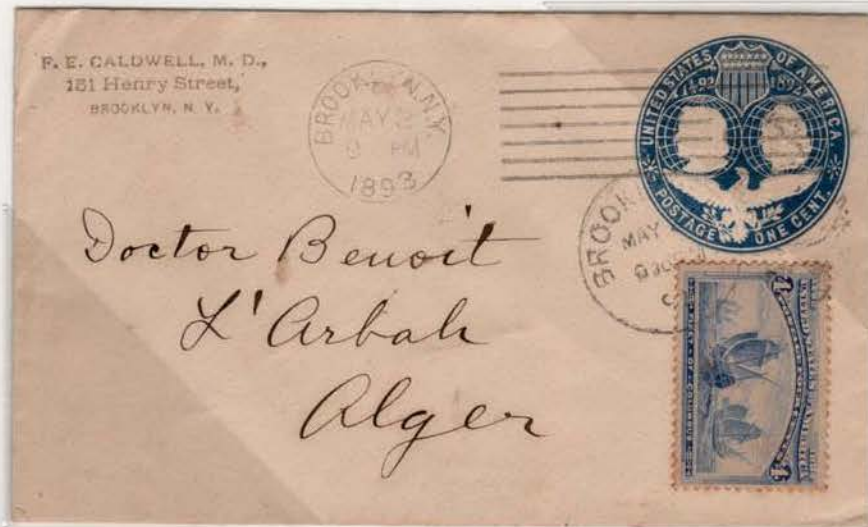 F. E. CALDWELL, M. D.,
151 Henry Street,
BROOKLYN, N. Y.
BROOKLYN, N.Y.
MAY 2
PM
1893
UNITED STATES OF AMERICA
1492 1892
POSTAGE ONE CENT.
BROOK
MAY
Doctor Benoit
L'Arbah
Alger
4
FLEET OF COLUMBUS
4